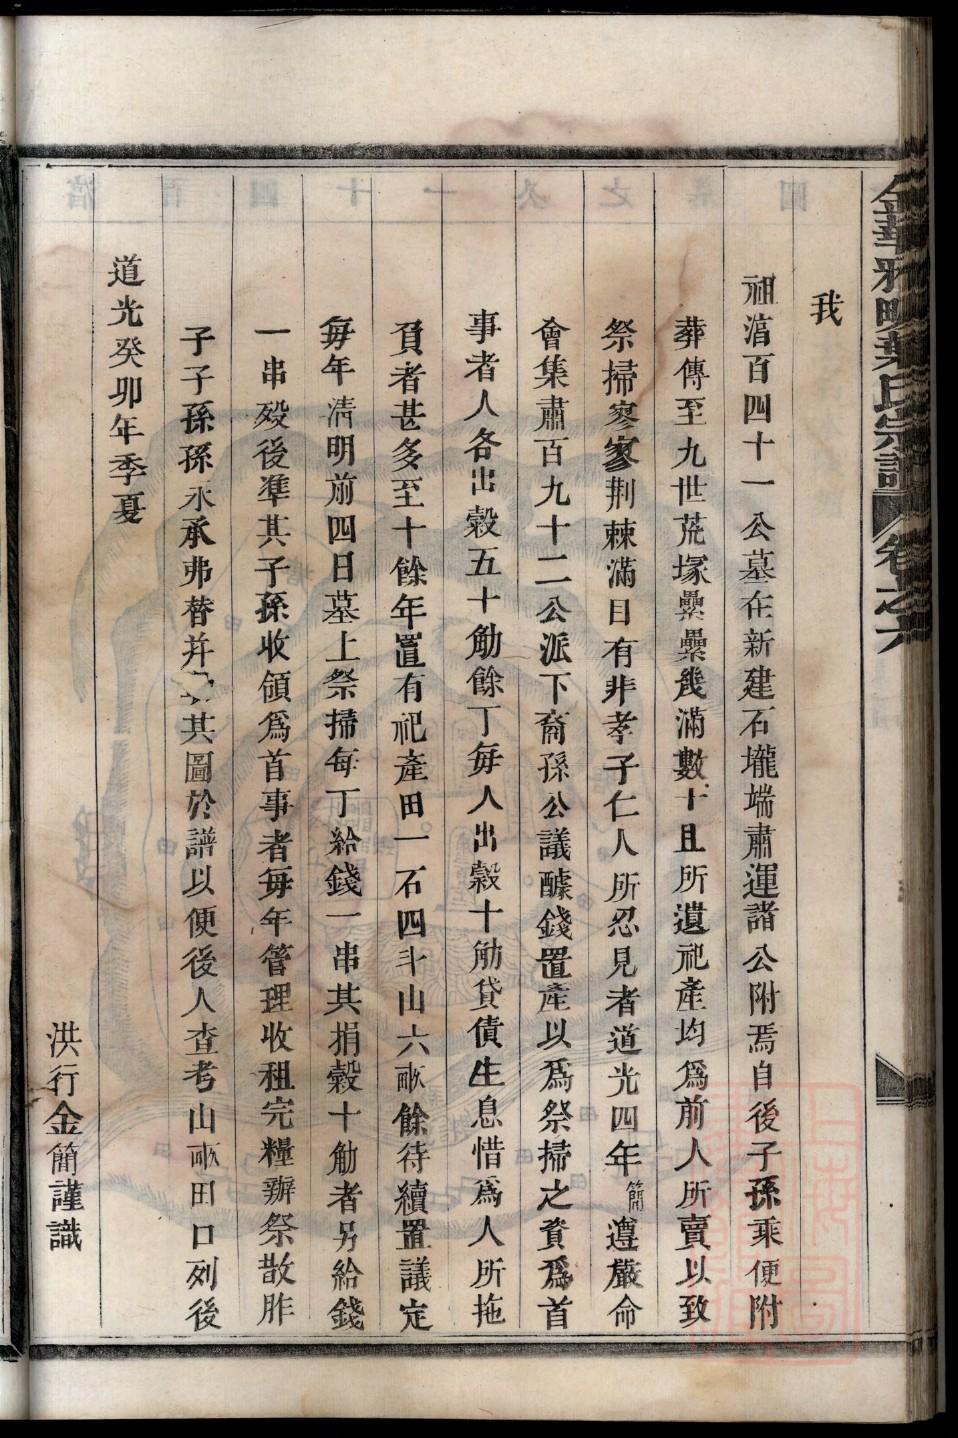 金華雅畈葉氏宗譜 卷之六
我
祖湻百四十一公墓在新建石壠端肅運諸公附焉自後子孫乘便附
葬傳至九世荒塚纍纍幾滿數十且所遺祀產均爲前人所賣以致
祭掃寥寥荆棘滿目有非孝子仁人所忍見者道光四年簡遵嚴命
會集肅百九十二公派下裔孫公議醵錢置產以爲祭掃之資爲首
事者人各出穀五十觔餘丁每人出穀十觔貸債生息惜爲人所拖
負者甚多至十餘年置有祀產田一石四斗山六畝餘待續置議定
每年清明前四日墓上祭掃每丁給錢一串其捐穀十觔者另給錢
一串殁後準其子孫收領爲首事者每年管理收租完糧辦祭散胙
子子孫孫永承弗替并其圖於譜以便後人查考山畝田口列後
道光癸卯年季夏
洪行金簡謹識